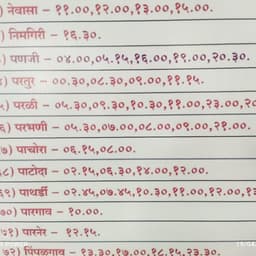 ) नेवासा – ११.००,१२.००,१३.००,१५.००.
) निमगिरी – १६.३०.
) पणजी – ०४.००,०५.१५,१६.००,१९.००,२०.३०.
) परतुर – ००.३०,०८.३०,०९.००,११.१५.
) परळी – ०५.३०,०९.३०,१०.३०,११.००,२३.००,२०
६) परभणी – ०५.३०,०७.००,०८.००,०९.००,२१.००.
७) पाचोरा – ०६.१५,०८.००.
८) पाटोदा – ०२.१५,०६.३०,१४.००,१२.००.
६९) पाथर्डी – ०२.४५,०७.४५,१०.३०,११.००,१२.००,१३
७०) पारगाव – १०.००.
७१) पारनेर – १२.१५.
७२) पिंपळगाव – १३.३०,१७.००,१८.१५,२३.३०.